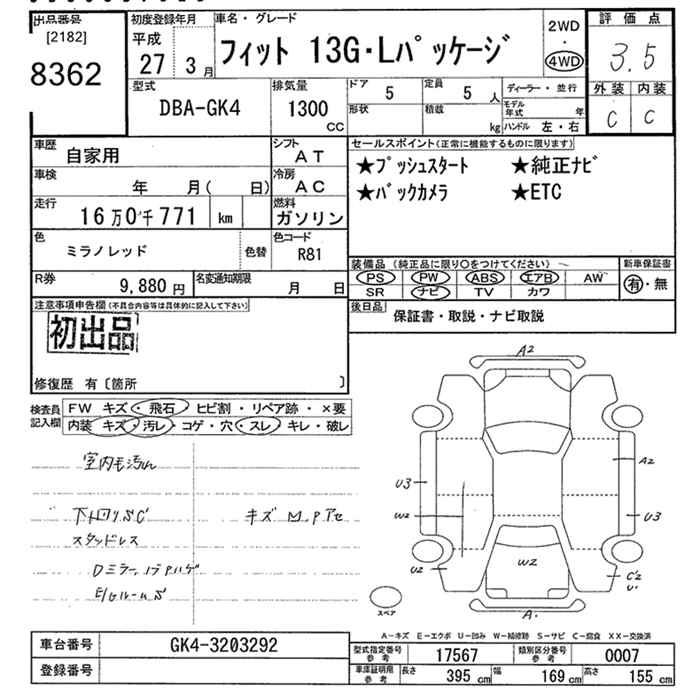 出品番号
[2182]
8362
初度登録年月
平成
27 3月
車名・グレード
フィット 13G・Lパッケージ
2WD
・
4WD
評価点
3.5
外装 内装
C C
型式
DBA-GK4
排気量
1300
cc
ドア 5
定員 5 人
形状
積載 kg
ディーラー・並行
モデル年式 年
ハンドル 左・右
車歴 自家用
シフト AT
車検 年 月( 日)
冷房 AC
走行 16万0千771 km
燃料 ガソリン
色 ミラノレッド 色替
色コード R81
R券 9,880円
名変通知期限 月 日
セールスポイント(正常に機能するものに限ります)
★プッシュスタート ★純正ナビ
★バックカメラ ★ETC
装備品(純正品に限り○をつけてください)
PS PW ABS エアB AW
SR ナビ TV カワ
新車保証書
有・無
後日品 保証書・取説・ナビ取説
注意事項申告欄(不具合内容等は具体的に記入して下さい)
初出品
修復歴 有〔箇所 〕
検査員記入欄
FW キズ・飛石・ヒビ割・リペア跡・×要
内装 キズ・汚レ・コゲ・穴・スレ・キレ・破レ
室内毛汚れ
下回りS C
スタッドレス
キズ
Dミラー
E/GルームS
A2
A2
U3
W2
U3
U2
W2
C2
U.
A.
スペア
A-キズ E-エクボ U-凹み W-補修跡 S-サビ C-腐食 XX-交換済
車台番号 GK4-3203292
登録番号
型式指定番号 参考 17567
類別区分番号 参考 0007
車庫証明用 参考 長さ 395 cm 幅 169 cm 高さ 155 cm